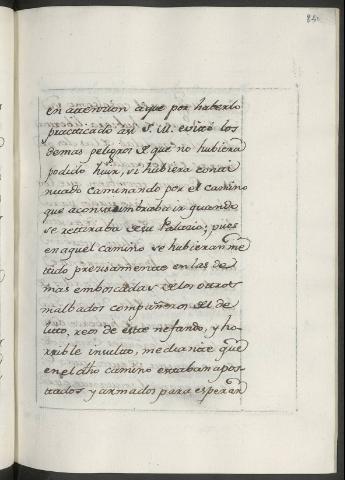 en attencion a que por haberlo
practicado asi S. M. evitó los
demas peligros de que no hubiera
podido huir, si hubiera conti
nuado caminando por el camino
que acostumbraba ir quando
se retiraba de su Palacio; pues
en aquel camino se hubieran me
tido precisamente en las de
mas emboscadas de los otros
malbados compañeros del de
lito, reos de este nefando, y ho
rrible insulto, mediante que
en el dho camino estaban apos
tados y armados para esperar